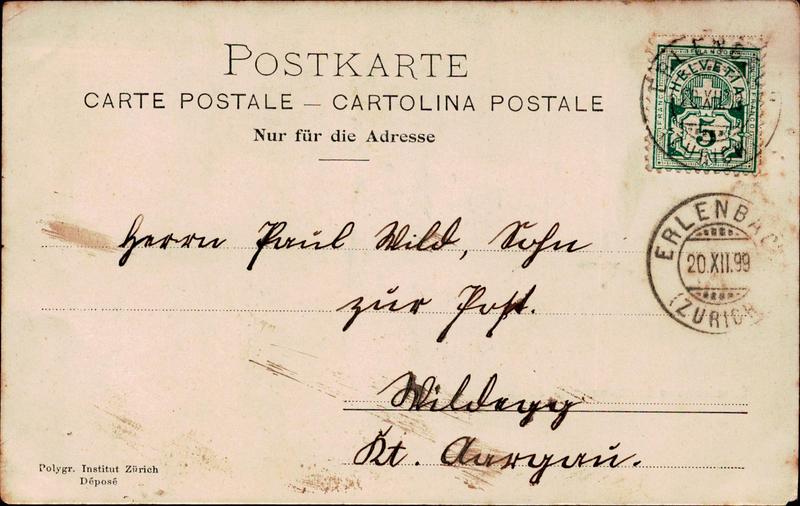 POSTKARTE
CARTE POSTALE – CARTOLINA POSTALE
Nur für die Adresse
FRANCO
HELVETIA
5
ERLENBACH
20.XII.99
(ZÜRICH)
Herrn Paul Wild, Sohn
zur Post.
Wildegg
Kt. Aargau.
Polygr. Institut Zürich
Déposé